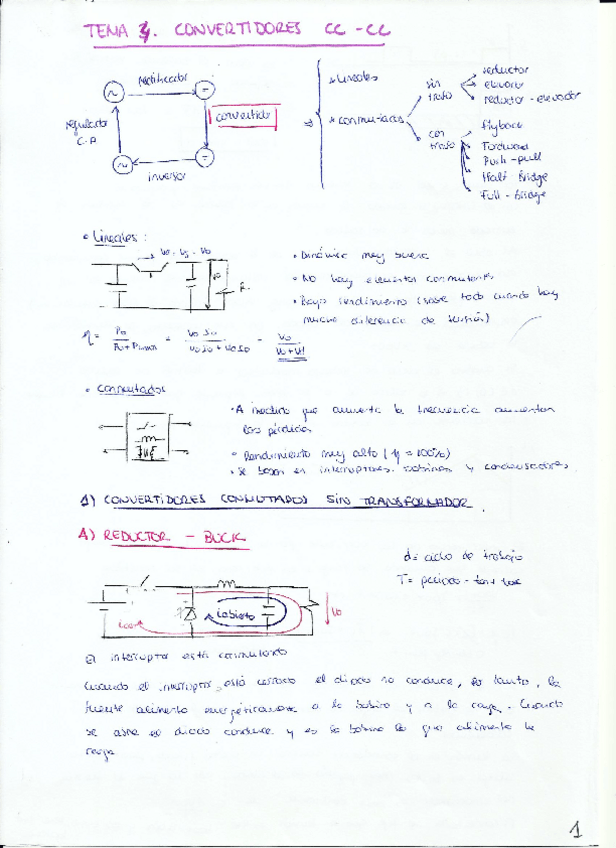 TEMA 4. CONVERTIDORES CC - CC
rectificador
convertido
regulador
C.A
inversor
* Lineales
* conmutados
sin
trafo
reductor
elevador
reductor - elevador
con
trafo
flyback
Forward
Push - pull
Half - Bridge
Full - Bridge
• Lineales:
• Dinámica muy buena
• No hay elementos conmutando
• Bajo rendimiento (sobre todo cuando hay
mucha diferencia de tensión)
• Conmutados
• A medida que aumenta la frecuencia aumentan
las pérdidas
• Rendimiento muy alto (η = 100%)
• Se basan en interruptores, bobinas y condensadores.
1) CONVERTIDORES CONMUTADOS SIN TRANSFORMADOR
A) REDUCTOR - BUCK
d = ciclo de trabajo
T = periodo - ton +
iabierto
Vo
El interruptor está conmutando
Cuando el interruptor está cerrado el diodo no conduce, por tanto, la
fuente alimenta energéticamente a la bobina y a la carga. Cuando
se abre el diodo conduce y es la bobina la que alimenta la
carga
1